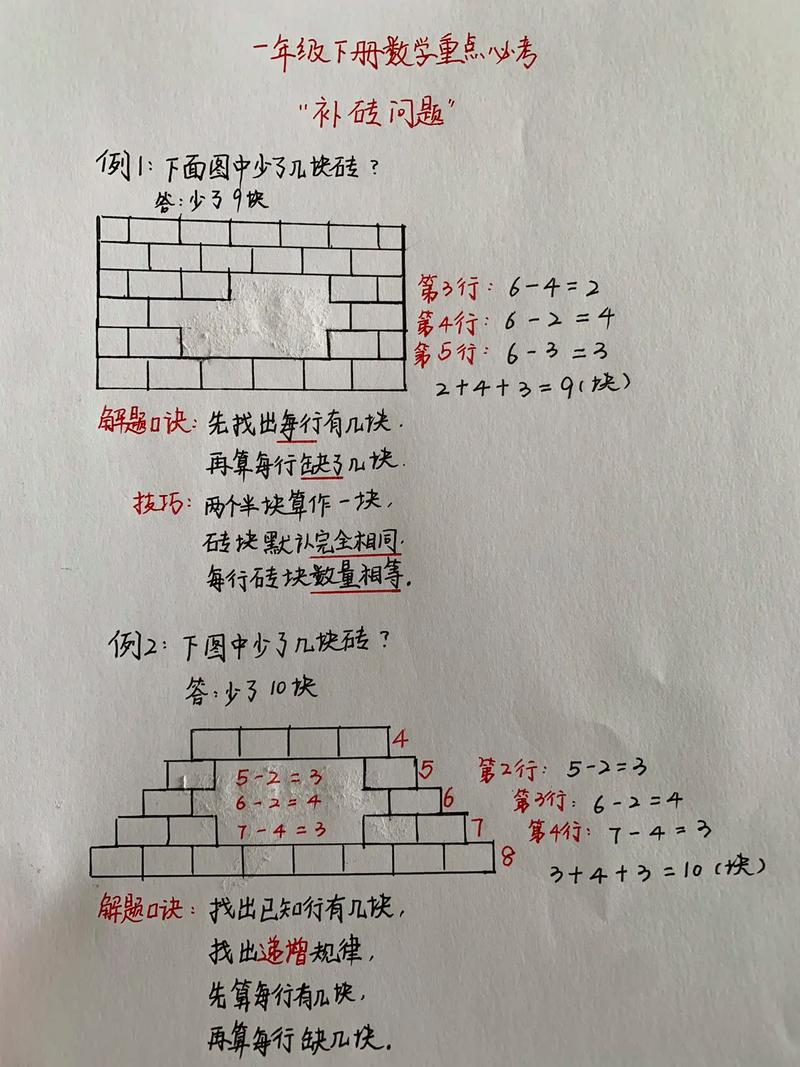 一年级下册数学重点必考
“补砖问题”
例1：下面图中少了几块砖？
答：少了9块
第3行：6-4=2
第4行：6-2=4
第5行：6-3=3
2+4+3=9（块）
解题口诀：先找出每行有几块.
再算每行缺了几块.
技巧：两个半块算作一块，
砖块默认完全相同.
每行砖块数量相等.
例2：下图中少了几块砖？
答：少了10块
4
5-2=3
5
6-2=4
6
7-4=3
7
8
第2行：5-2=3
第3行：6-2=4
第4行：7-4=3
3+4+3=10（块）
解题口诀：找出已知行有几块，
找出递增规律，
先算每行有几块，
再算每行缺几块.